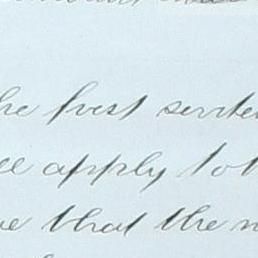 he first senten
ll apply to t
e that the n